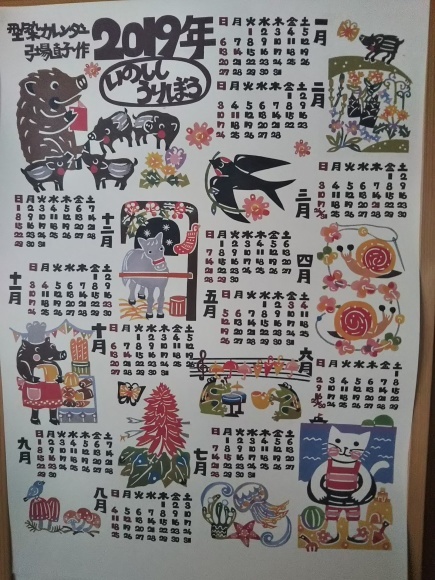 型染カレンダー
2019年
いのしし
うりぼう
一月
日 月 火 水 木 金 土
1 2 3 4 5
6 7 8 9 10 11 12
13 14 15 16 17 18 19
20 21 22 23 24 25 26
27 28 29 30 31
二月
日 月 火 水 木 金 土
1 2
3 4 5 6 7 8 9
10 11 12 13 14 15 16
17 18 19 20 21 22 23
24 25 26 27 28
三月
日 月 火 水 木 金 土
1 2
3 4 5 6 7 8 9
10 11 12 13 14 15 16
17 18 19 20 21 22 23
24 25 26 27 28 29 30
31
四月
日 月 火 水 木 金 土
1 2 3 4 5 6
7 8 9 10 11 12 13
14 15 16 17 18 19 20
21 22 23 24 25 26 27
28 29 30
五月
日 月 火 水 木 金 土
1 2 3 4
5 6 7 8 9 10 11
12 13 14 15 16 17 18
19 20 21 22 23 24 25
26 27 28 29 30 31
六月
日 月 火 水 木 金 土
1
2 3 4 5 6 7 8
9 10 11 12 13 14 15
16 17 18 19 20 21 22
23 24 25 26 27 28 29
30
七月
日 月 火 水 木 金 土
1 2 3 4 5 6
7 8 9 10 11 12 13
14 15 16 17 18 19 20
21 22 23 24 25 26 27
28 29 30 31
八月
日 月 火 水 木 金 土
1 2 3
4 5 6 7 8 9 10
11 12 13 14 15 16 17
18 19 20 21 22 23 24
25 26 27 28 29 30 31
九月
日 月 火 水 木 金 土
1 2 3 4 5 6 7
8 9 10 11 12 13 14
15 16 17 18 19 20 21
22 23 24 25 26 27 28
29 30
十月
日 月 火 水 木 金 土
1 2 3 4 5
6 7 8 9 10 11 12
13 14 15 16 17 18 19
20 21 22 23 24 25 26
27 28 29 30 31
十一月
日 月 火 水 木 金 土
1 2
3 4 5 6 7 8 9
10 11 12 13 14 15 16
17 18 19 20 21 22 23
24 25 26 27 28 29 30
十二月
日 月 火 水 木 金 土
1 2 3 4 5 6 7
8 9 10 11 12 13 14
15 16 17 18 19 20 21
22 23 24 25 26 27 28
29 30 31